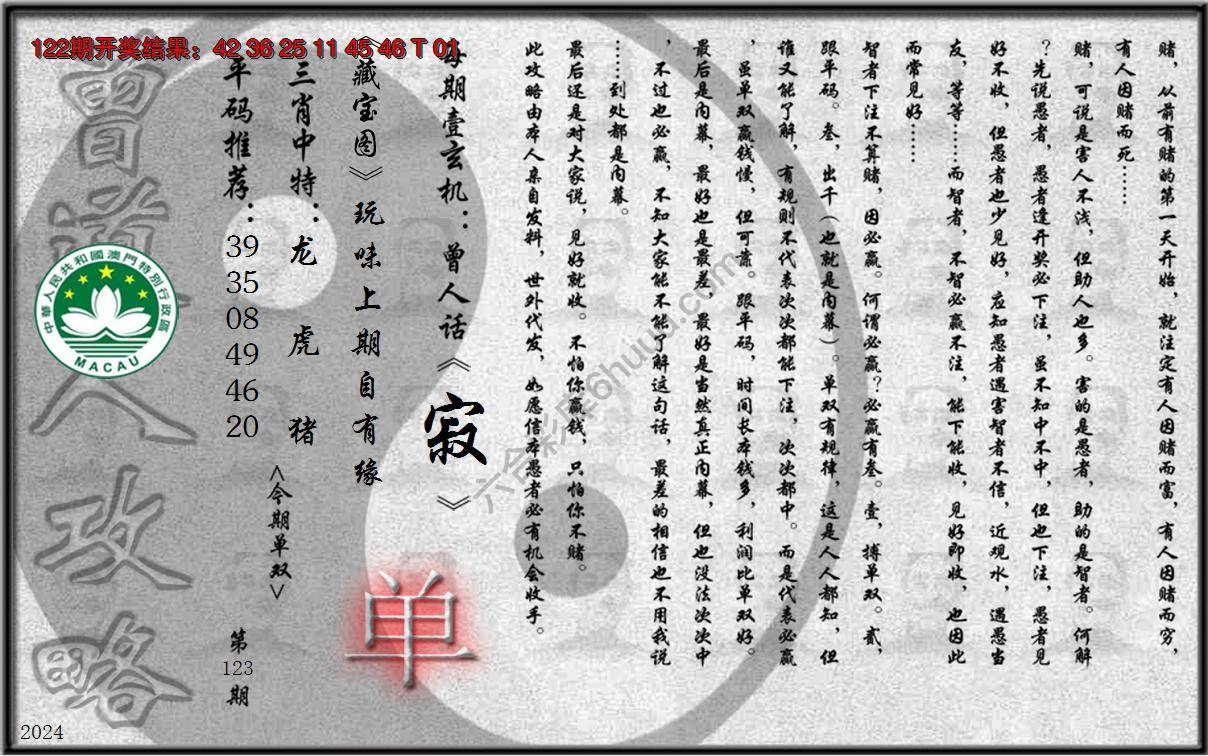 122期开奖结果：42 36 25 11 45 46 T 01
赌，从前有赌的第一天开始，就注定有人因赌而富，有人因赌而穷，
有人因赌而死……
赌，可说是害人不浅，但助人也多。害的是愚者，助的是智者。何解
？先说愚者，愚者逢开奖必下注，虽不知中不中，但也下注，愚者见
好不收，但愚者也少见好，应知愚者遇害智者不信，近观水，遇愚当
友，等等……而智者，不智必赢不注，能下能收，见好即收，也因此
而常见好……
智者下注不算赌，因必赢。何谓必赢？必赢有叁。壹，搏单双。贰，
跟平码。叁，出千（也就是内幕）。单双有规律，这是人人都知，但
谁又能了解，有规则不代表次次都能下注，次次都中。而是代表必赢
，虽单双赢钱慢，但可靠。跟平码，时间长本钱多，利润比单双好。
最后是内幕，最好也是最差，最好是当然真正内幕，但也没法次次中
，不过也必赢，不知大家能不能了解这句话，最差的相信也不用我说
……到处都是内幕。
最后还是对大家说，见好就收。不怕你赢钱，只怕你不赌。
此攻略由本人亲自发料，世外代发，如愿信本愚者必有机会收手。
每期壹玄机：曾人话《寂》
《藏宝图》玩味上期自有缘
三肖中特：龙 虎 猪
平码推荐：39 35 08 49 46 20
<今期单双>
单
第123期
曾道人攻略
中華人民共和國澳門特別行政區
MACAU
2024